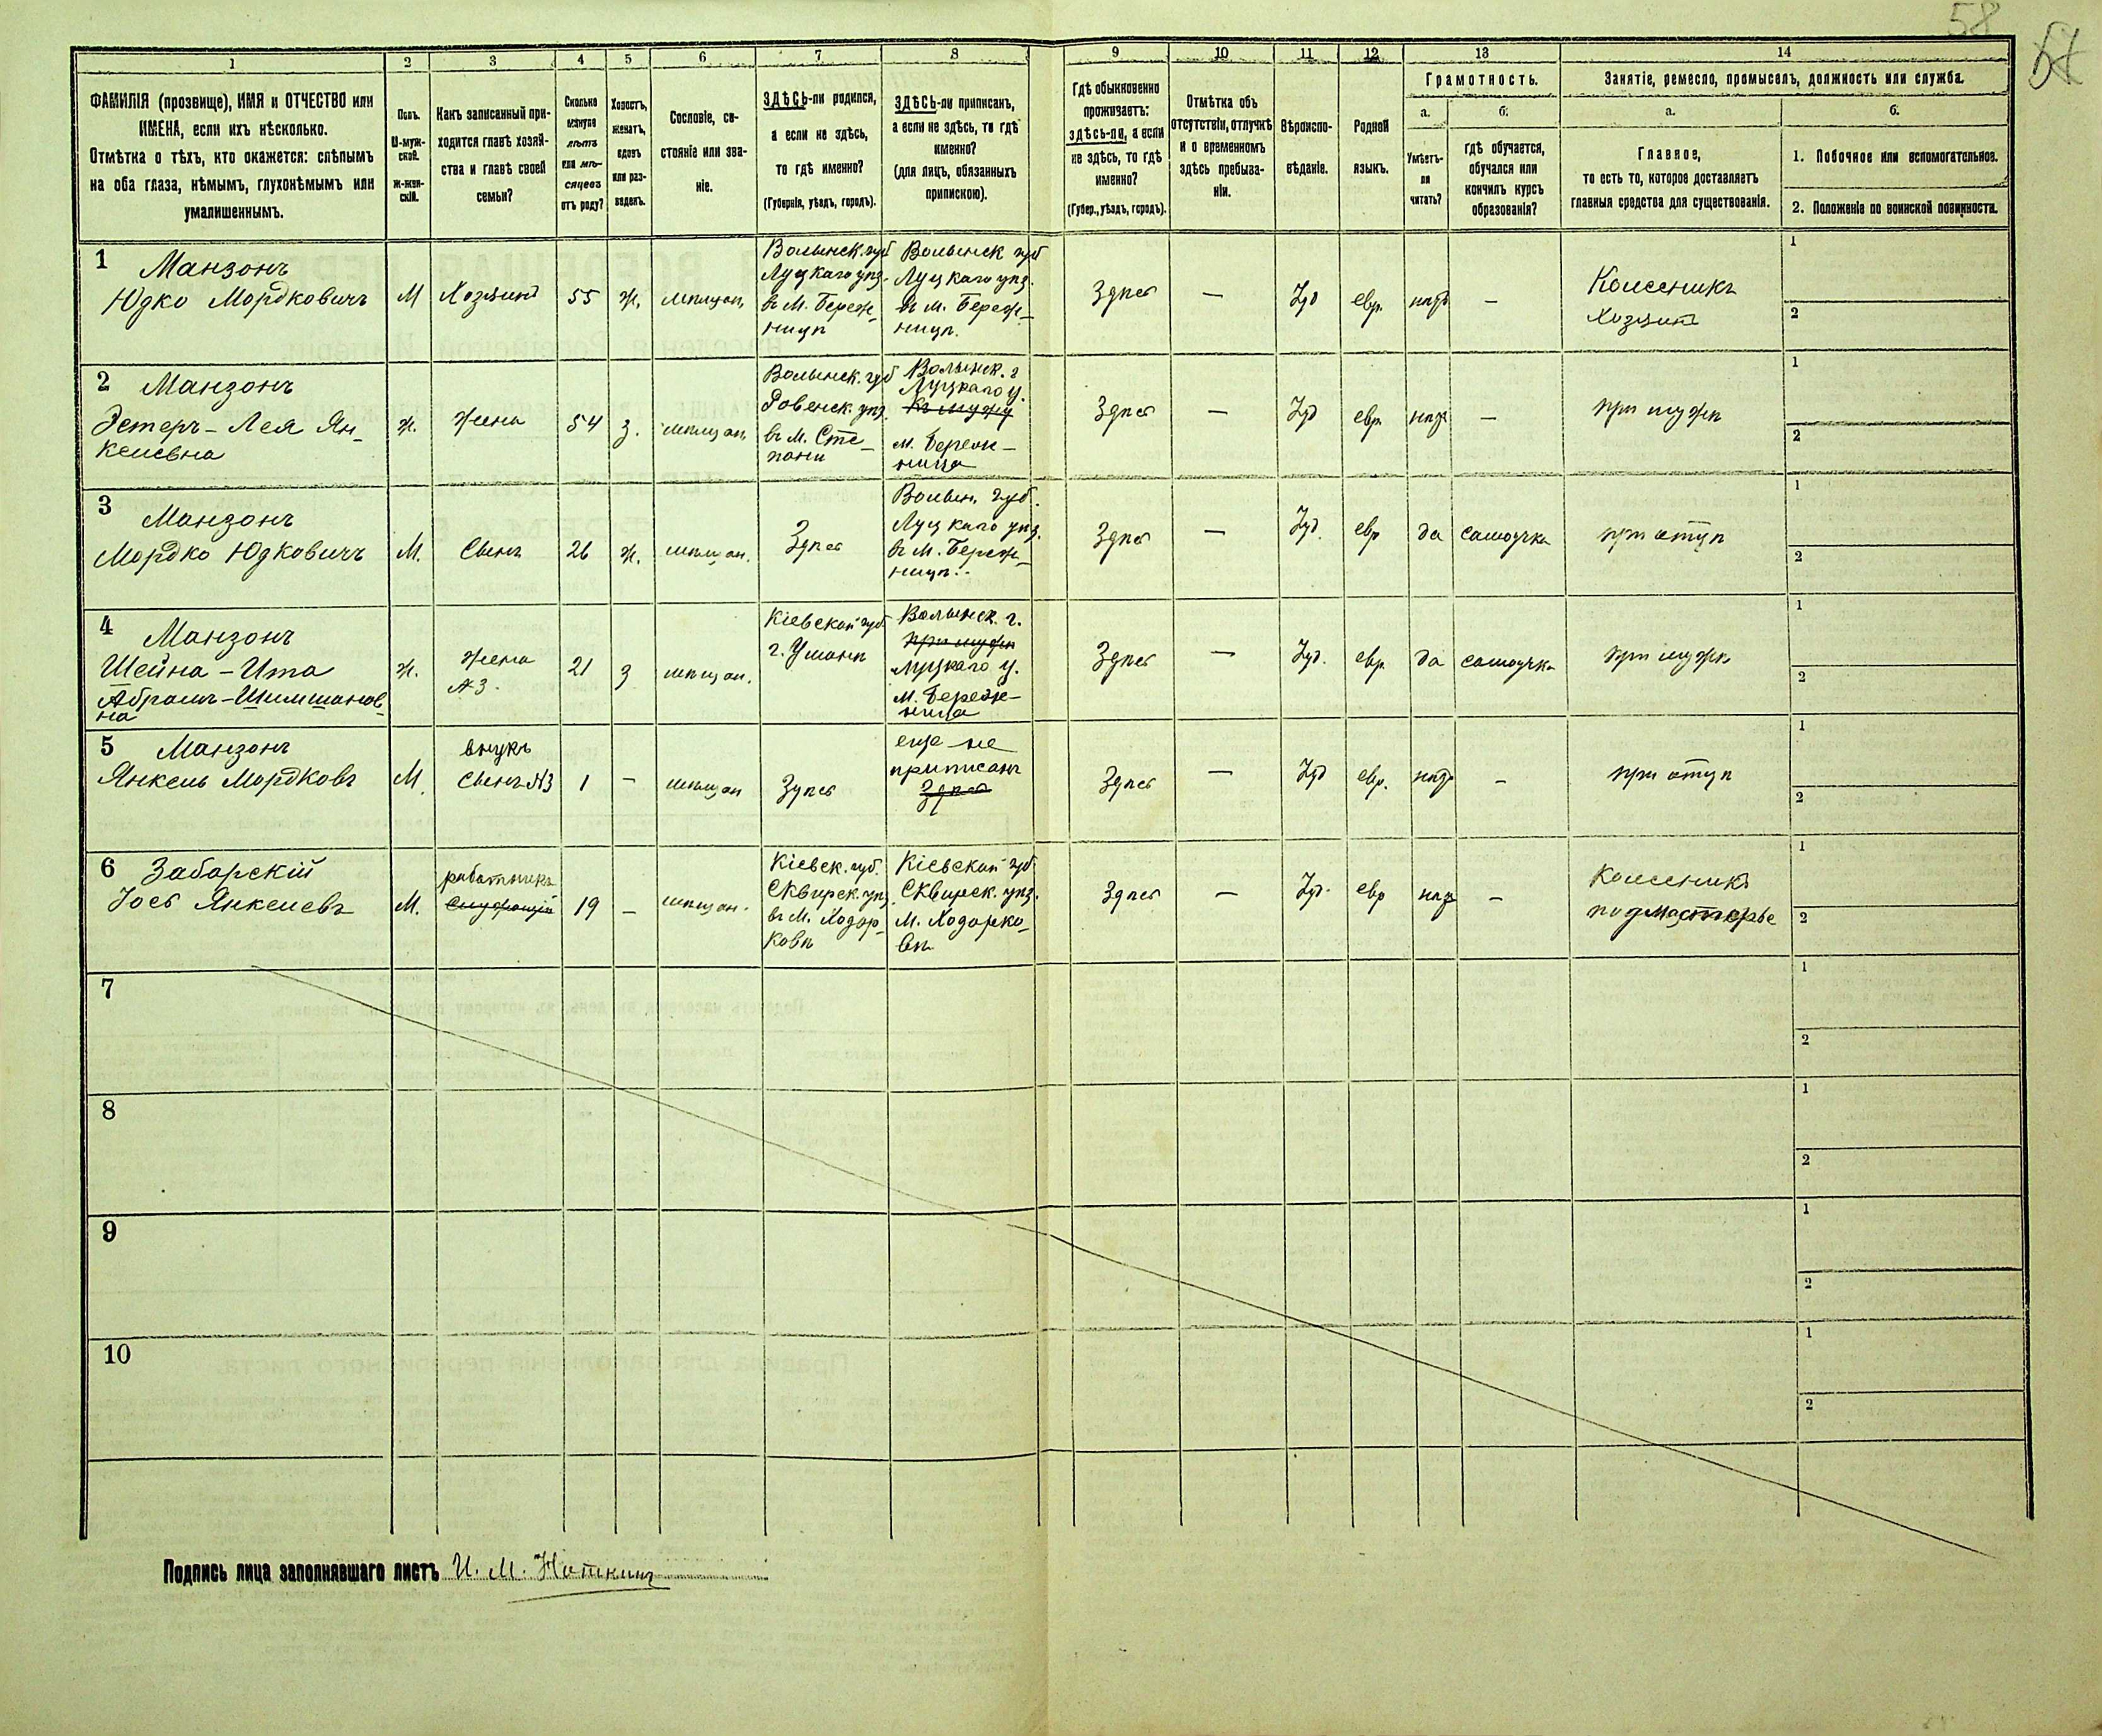 58
1
2
3
4
5
6
7
8
9
10
11
12
13
14
ФАМИЛІЯ (прозвище), ИМЯ и ОТЧЕСТВО или
ИМЕНА, если ихъ нѣсколько.
Отмѣтка о тѣхъ, кто окажется: слѣпымъ
на оба глаза, нѣмымъ, глухонѣмымъ или
умалишеннымъ.
Полъ.
М-муж-
ской.
Ж-жен-
скій.
Какъ записанный при-
ходится главѣ хозяй-
ства и главѣ своей
семьи?
Сколько
минуло
лѣтъ
или мѣ-
сяцевъ
отъ роду?
Холостъ,
женатъ,
вдовъ
или раз-
веденъ.
Сословіе, со-
стояніе или зва-
ніе.
ЗДѢСЬ-ли родился,
а если не здѣсь,
то гдѣ именно?
(Губернія, уѣздъ, городъ).
ЗДѢСЬ-ли приписанъ,
а если не здѣсь, то гдѣ
именно?
(для лицъ, обязанныхъ
припискою).
Гдѣ обыкновенно
проживаетъ:
здѣсь-ли, а если
не здѣсь, то гдѣ
именно?
(Губер., уѣздъ, городъ).
Отмѣтка объ
отсутствіи, отлучкѣ
и о временномъ
здѣсь пребыва-
ніи.
Вѣроиспо-
вѣданіе.
Родной
языкъ.
Грамотность.
а.
Умѣетъ-
ли
читать?
б.
гдѣ обучается,
обучался или
кончилъ курсъ
образованія?
Занятіе, ремесло, промыселъ, должность или служба.
а.
Главное,
то есть то, которое доставляетъ
главныя средства для существованія.
б.
1. Побочное или вспомогательное.
2. Положеніе по воинской повинности.
1 Манзонъ
Юдко Мордковичъ
М
Хозяинъ
55
Ж.
мѣщан.
Волынск. губ
Луцкаго уѣз.
въ М. Береж-
ницѣ
Волынск губ
Луцкаго уѣз.
въ м. Береж-
ницѣ.
Здѣсь
—
Іуд
евр.
нѣтъ
—
Колесникъ
Хозяинъ
1
2
2 Манзонъ
Эстеръ-Лея Ян-
келевна
ж.
Жена
54
з.
мѣщан.
Волынск. губ
Ровенск. уѣз.
въ м. Сте-
пани
Волынск. г
Луцкаго у.
къ мужу
м. Береж-
ница
Здѣсь
—
Іуд
евр.
нѣтъ
—
при мужѣ
1
2
3 Манзонъ
Мордко Юдковичъ
М.
Сынъ
26
Ж.
мѣщан.
Здѣсь
Волын. губ.
Луцкаго уѣз.
въ м. Береж-
ницѣ.
Здѣсь
—
Іуд.
евр
да
самоучка
при отцѣ
1
2
4 Манзонъ
Шейна-Ита
Абрамъ-Шимшанов-
на
ж.
Жена
№3.
21
з
мѣщан.
Кіевской губ
г. Умани
Волынск. г.
при мужѣ
Луцкаго у.
м. Береж-
ница
Здѣсь
—
Іуд.
евр.
да
самоучка
при мужѣ
1
2
5 Манзонъ
Янкель Мордковъ
М.
внукъ
Сынъ №3
1
–
мѣщан
Здѣсь
еще не
приписанъ
Здѣсь
Здѣсь
—
Іуд
евр.
нѣтъ
–
при отцѣ
1
2
6 Забарскій
Іосъ Янкелевъ
М.
работникъ
19
–
мѣщан.
Кіевск. губ.
Сквирск. уѣз.
въ М. Ходор-
ковѣ
Кіевской губ
Сквирск. уѣз.
М. Ходорко-
вѣ
Здѣсь
–
Іуд.
евр
нѣтъ
–
Колесникъ
подмастерье
1
2
7
1
2
8
1
2
9
1
2
10
1
2
Подпись лица заполнявшаго листъ И. М. Ноткинъ